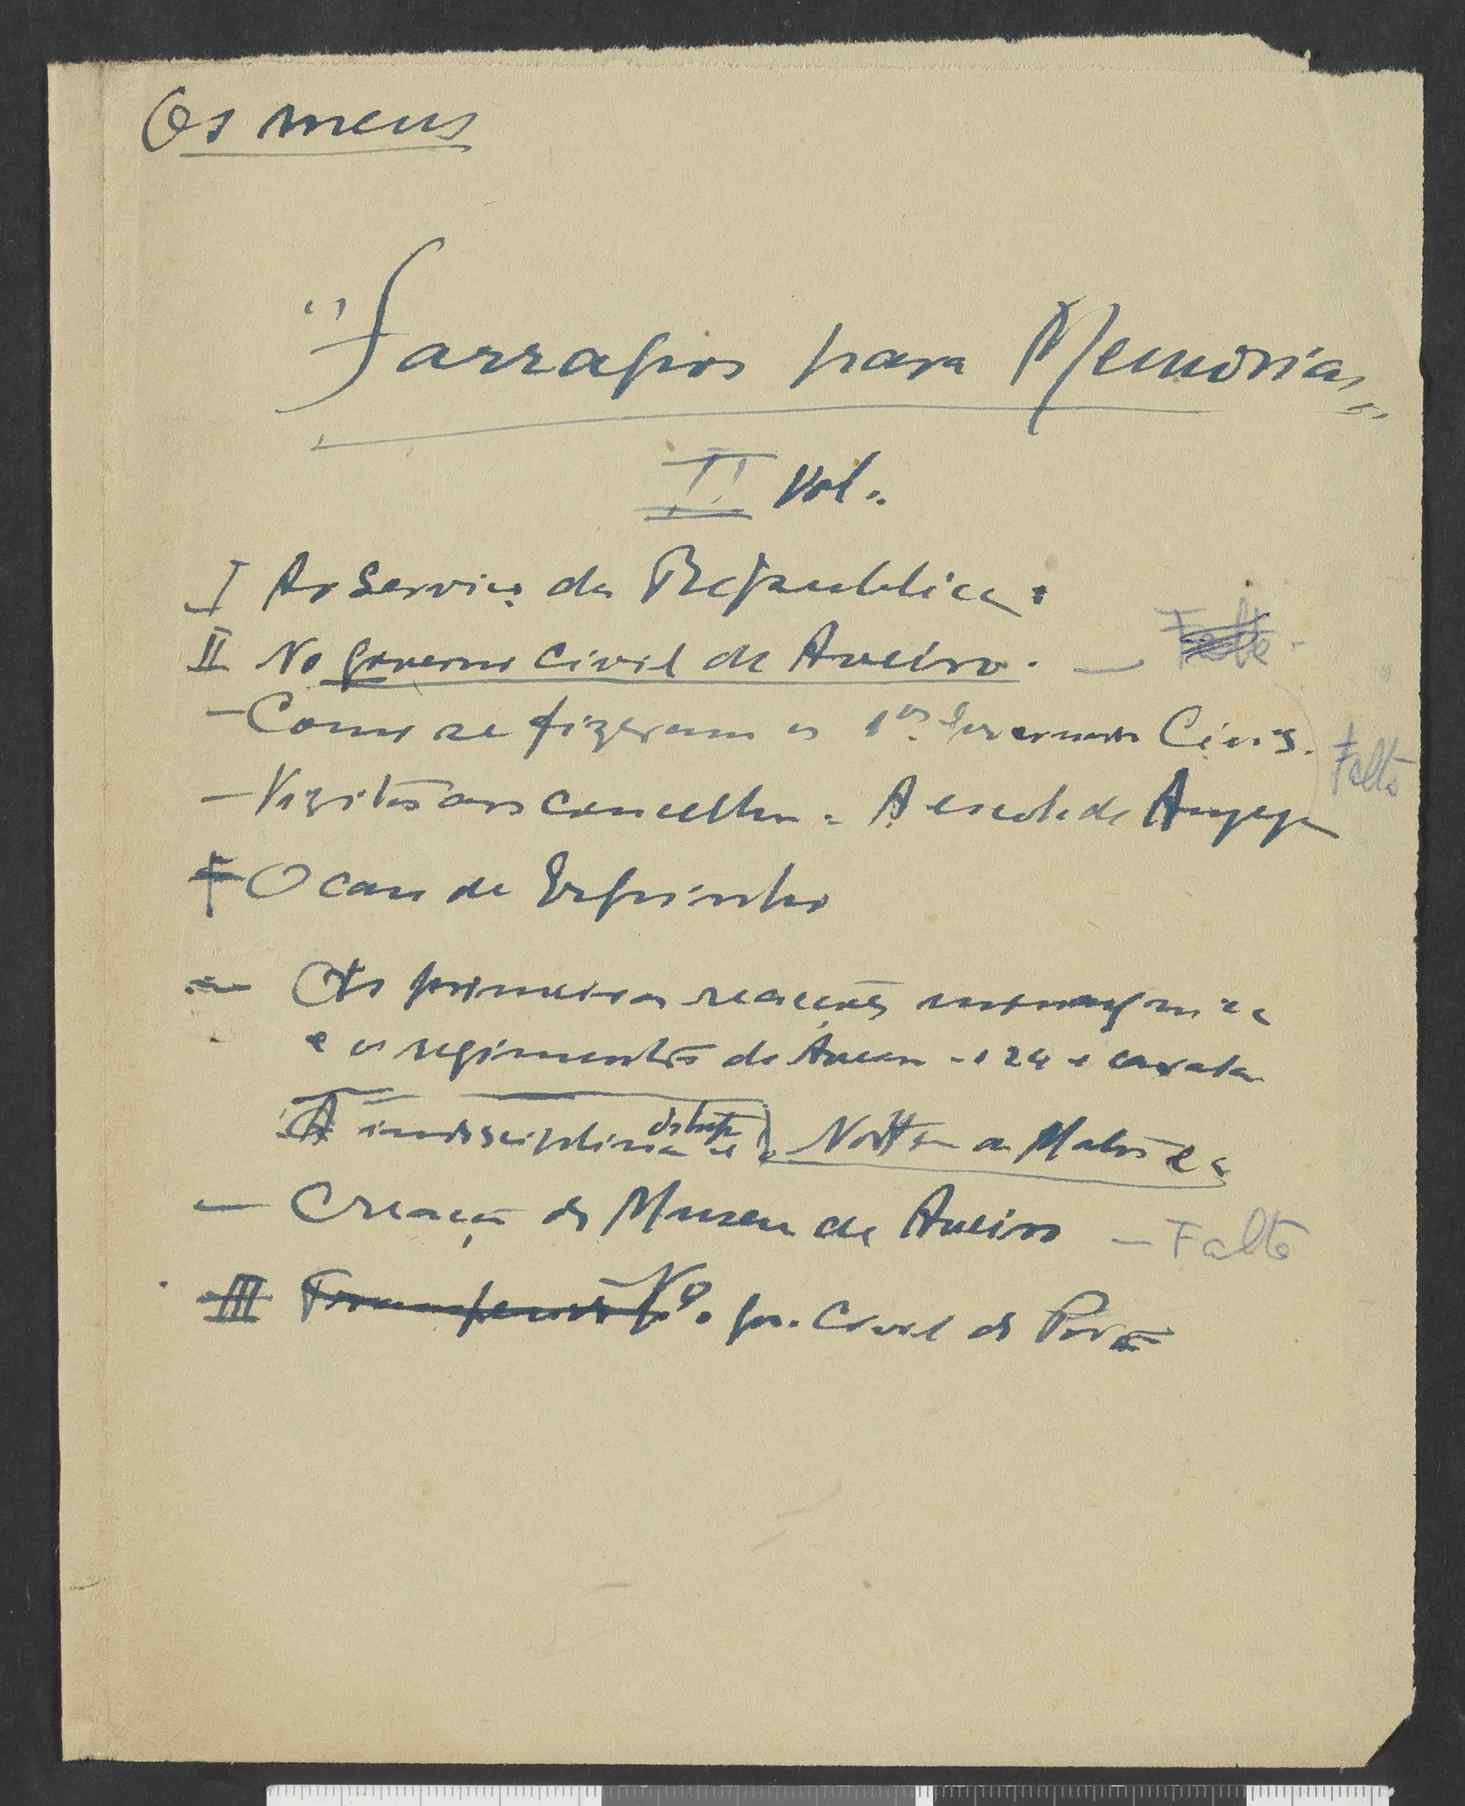 Os meus
"Farrapos para Memorias"
II Vol.
I Ao Serviço da Republica.
II No Governo Civil de Aveiro. — Falta
— Como se fizeram os 1os Governos Civis.
Falta
— Vizitas aos concelhos. A escola de Angeja
— O caso de Espinho
— As primeiras reacções monarquicas
e os regimentos de Aveiro - o 24 e cavalaria
A indisciplina das tropas
— Creação do Museu de Aveiro — Falta
III No Gov. Civil do Porto